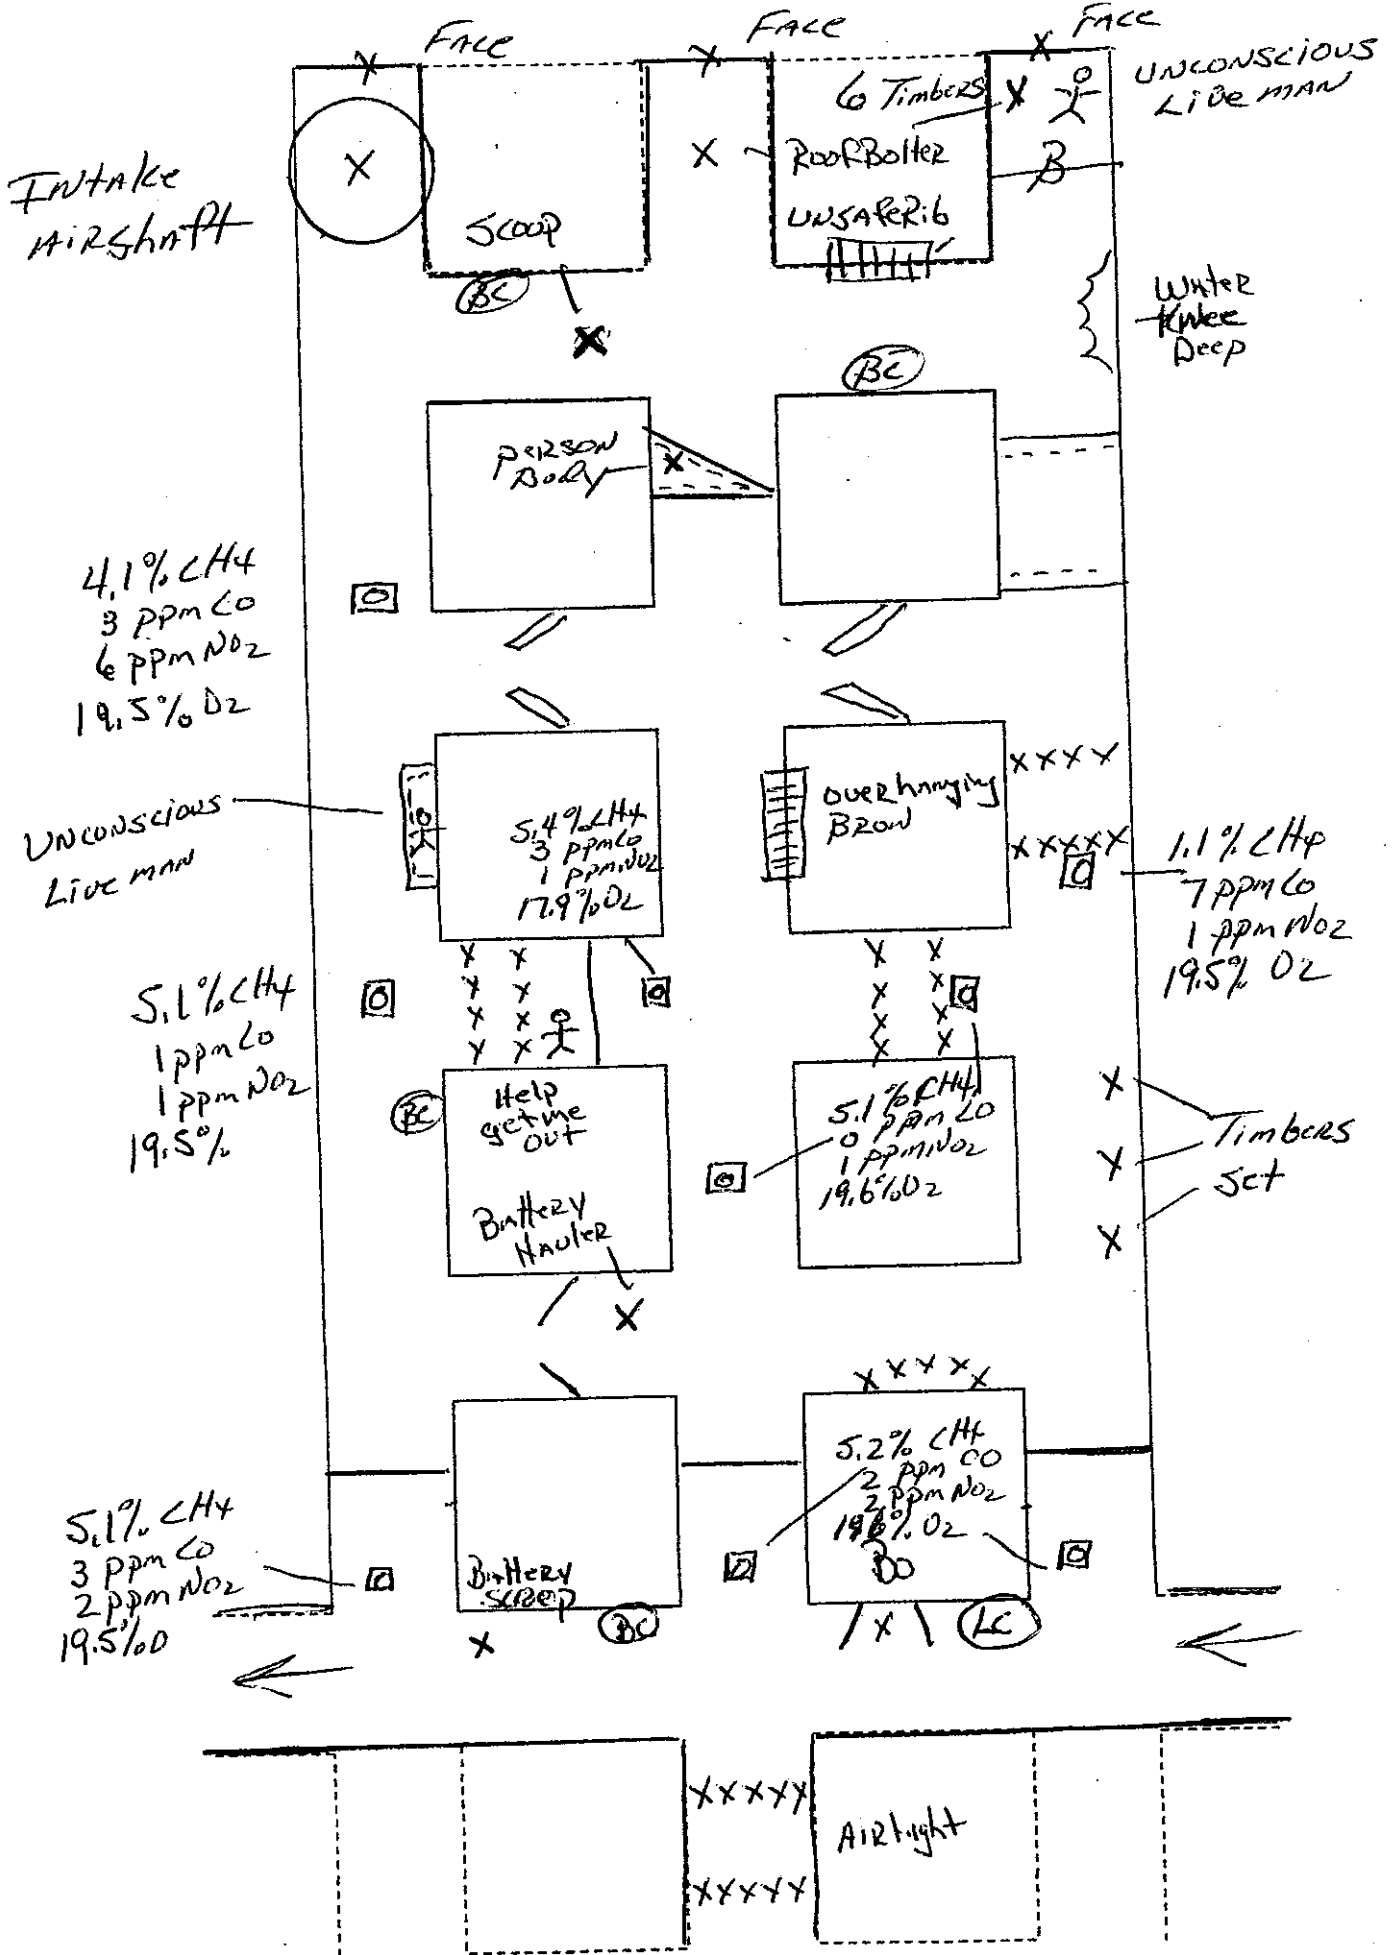 FACE
FACE
FACE
UNCONSCIOUS
Live MAN
6 Timbers
INTAKE
AIRshaft
RoofBolter
B
UNSAFERib
Scoop
BC
Water
Knee
Deep
BC
person
Body
4.1% CH4
3 ppm Co
6 ppm NO2
19.5% O2
UNCONSCIOUS
Live MAN
5.4% CH4
3 ppm Co
1 ppm NO2
17.9% O2
overhanging
Brow
1.1% CH4
7 ppm Co
1 ppm NO2
19.5% O2
5.1% CH4
1 ppm Co
1 ppm NO2
19.5%
BC
Help
get me
out
Battery
Hauler
5.1% CH4
0 ppm CO
1 ppm NO2
19.6% O2
Timbers
Set
5.2% CH4
2 ppm CO
2 ppm NO2
19.6% O2
BO
5.1% CH4
3 ppm Co
2 ppm NO2
19.5% O
Battery
BC
LC
AIRtight